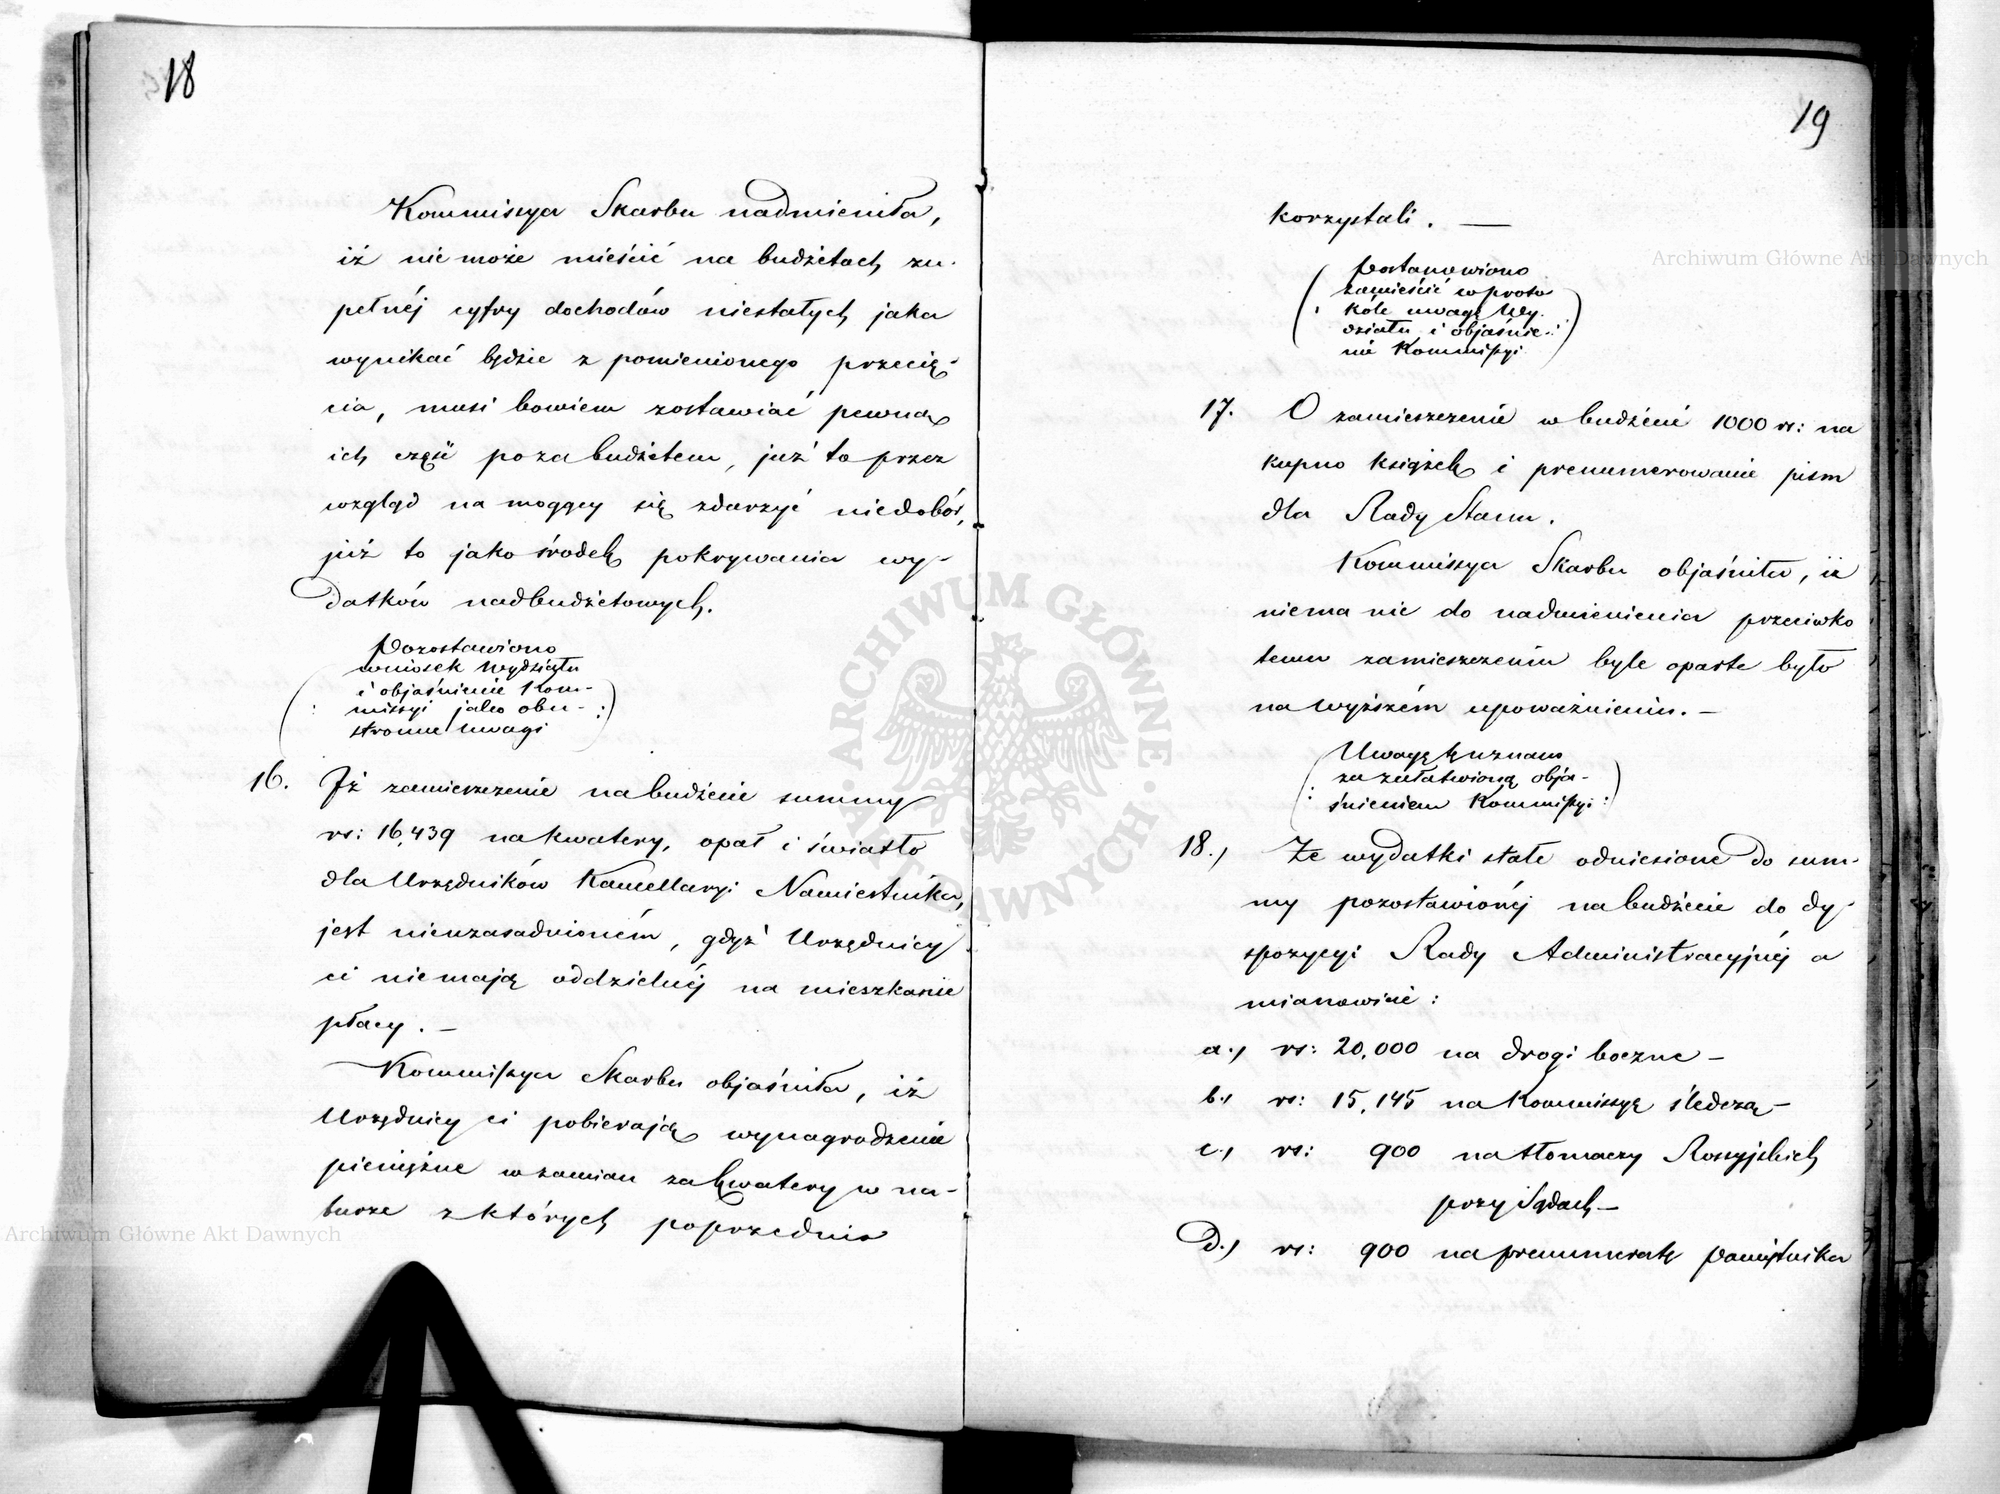 18
Kommissya Skarbu nadmieniła,
iż nie może mieścić na budżetach zu-
pełnéj cyfry dochodów niestałych jaka
wynikać będzie z pomienionego przecię-
cia, musi bowiem zostawiać pewną
ich część poza budżetem, już to przez
wzgląd na mogący się zdarzyć niedobór,
już to jako środek pokrywania wy-
datków nadbudżetowych.
Pozostawiono
wniosek Wydziału
(: i objaśnienie Kom-
missyi jako obu- :)
stronne uwagi
16. Iż zamieszczenie na budżecie summy
rs: 16,439 na kwatery, opał i światło
dla Urzędników Kancellaryi Namiestnika,
jest nieuzasadnioném, gdyż Urzędnicy
ci nie mają oddzielnéj na mieszkanie
płacy. —
Kommissya Skarbu objaśniła, iż
Urzędnicy ci pobierają wynagrodzenie
pieniężne w zamian za kwatery w na-
turze z których poprzednio
19
korzystali. —
Postanowiono
zamieścić w proto
(: kóle uwagę Wy-
działu i objaśnie- :)
nie Kommissyi
17. O zamieszczenie w budżecie 1000 rs: na
kupno książek i prenumerowanie pism
dla Rady Stanu.
Kommissya Skarbu objaśniła, iż
niema nic do nadmienienia przeciwko
temu zamieszczeniu byle oparte było
na wyższém upoważnieniu. —
Uwagę tę uznano
za załatwioną obja-
(: śnieniem Kommissyi :)
18., Że wydatki stałe odniesione do sum-
my pozostawionéj na budżecie do dy-
spozycyi Rady Administracyjnéj a
mianowicie:
a., rs: 20,000 na drogi boczne —
b., rs: 15,145 na Kommissyę śledczą —
c., rs: 900 na tłomaczy Rossyjskich
przy Sądach —
d., rs: 900 na prenumeratę Pamiętnika
Archiwum Główne Akt Dawnych
Archiwum Główne Akt Dawnych
ARCHIWUM GŁÓWNE AKT DAWNYCH